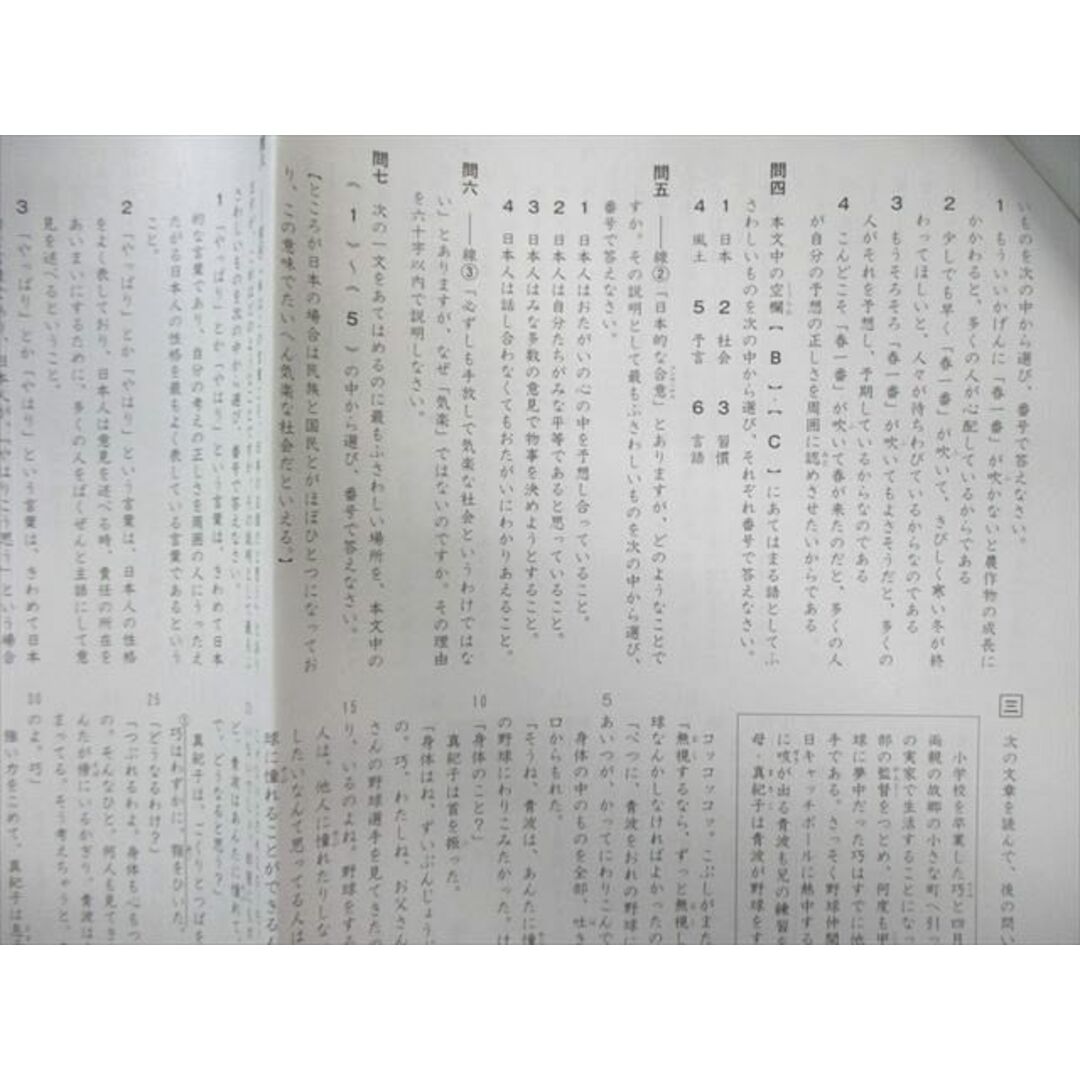 いものを次の中から選び、番号で答えなさい。
1 もういいかげんに「春一番」が吹かないと農作物の成長に
かかわると、多くの人が心配しているからである
2 少しでも早く「春一番」が吹いて、きびしく寒い冬が終
わってほしいと、人々が待ちわびているからなのである
3 もうそろそろ「春一番」が吹いてもよさそうだと、多くの
人がそれを予想し、予期しているからなのである
4 こんどこそ「春一番」が吹いて春が来たのだと、多くの人
が自分の予想の正しさを周囲に認めさせたいからである
問四 本文中の空欄【B】・【C】にあてはまる語としてふ
さわしいものを次の中から選び、それぞれ番号で答えなさい。
1 日本 2 社会 3 習慣
4 風土 5 予言 6 言語
問五 ――線②「日本的な合意」とありますが、どのようなことで
すか。その説明として最もふさわしいものを次の中から選び、
番号で答えなさい。
1 日本人はおたがいの心の中を予想し合っていること。
2 日本人は自分たちがみな平等であると思っていること。
3 日本人はみな多数の意見で物事を決めようとすること。
4 日本人は話し合わなくてもおたがいにわかりあえること。
問六 ――線③「必ずしも手放しで気楽な社会というわけではな
い」とありますが、なぜ「気楽」ではないのですか。その理由
を六十字以内で説明しなさい。
問七 次の一文をあてはめるのに最もふさわしい場所を、本文中の
（1）～（5）の中から選び、番号で答えなさい。
【ところが日本の場合は民族と国民とがほぼひとつになってお
り、この意味でたいへん気楽な社会だといえる。】
さわしいものを次の中から選び、番号で答えなさい。
1 「やっぱり」とか「やはり」という言葉は、きわめて日本
的な言葉であり、自分の考えの正しさを周囲の人にうったえ
たがる日本人の性格を最もよく表している言葉であるという
こと。
2 「やっぱり」とか「やはり」という言葉は、日本人の性格
をよく表しており、日本人は意見を述べる時、責任の所在を
あいまいにするために、多くの人をばくぜんと主語にして意
見を述べるということ。
3 「やっぱり」とか「やはり」という言葉は、きわめて日本
三 次の文章を読んで、後の問い
小学校を卒業した巧と四月
両親の故郷の小さな町へ引っ
の実家で生活することになっ
部の監督をつとめ、何度も甲
球に夢中だった巧はすでに他
手である。さっそく野球仲間
日キャッチボールに熱中する
に咳が出る青波も兄の練習
母・真紀子は青波が野球をす
コッコッコッ。こぶしがまた
「無視するなら、ずっと無視し
球なんかしなければよかったの
「べつに、青波をおれの野球に
5 あいつが、かってにわりこんで
身体の中のものを全部、吐き
口からもれた。
「そうね、青波は、あんたに憧
の野球にわりこみたかった。け
10 「身体のこと？」
真紀子は首を振った。
「身体はね、ずいぶんじょうぶ
の。巧、わたしね、お父さん
さんの野球選手を見てきたの
15 り、いるのよね。野球をする
人は、他人に憧れたりしな
したいなんて思ってる人は
球に憧れることができる人
ど、青波はあんたに憧れて
て、どうなると思う？」
真紀子は、ごくりとつばを
①巧はわずかに、顎をひいた
25 「どうなるわけ？」
「つぶれるわよ。身体も心もつ
の。そんなひと、何人も見てき
んたが傍にいるかぎり、青波は
まってる。そう考えちゃうと、
30 のよ、巧」
強い力をこめて、真紀子は